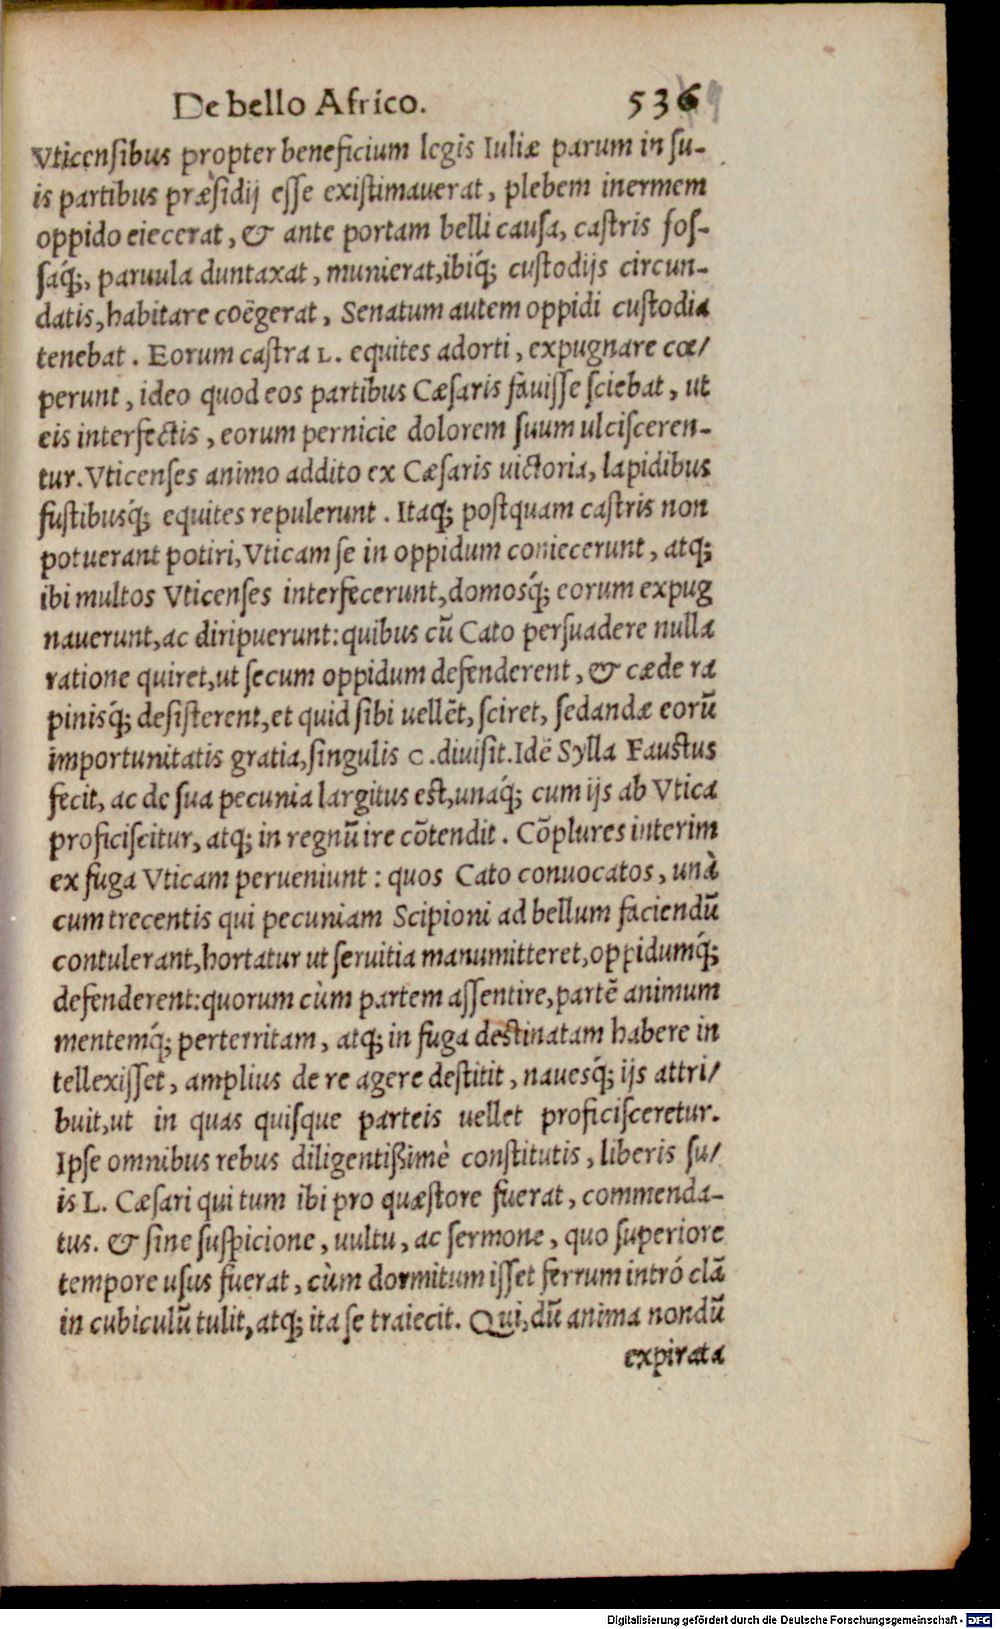 De bello Africo. 536
Vticensibus propter beneficium legis Iuliæ parum in su-
is partibus præsidij esse existimauerat, plebem inermem
oppido eiecerat, & ante portam belli causa, castris fos-
saq́;, paruula duntaxat, munierat, ibiq́; custodijs circun-
datis, habitare coëgerat, Senatum autem oppidi custodia
tenebat. Eorum castra L. equites adorti, expugnare cœ/
perunt, ideo quod eos partibus Cæsaris fauisse sciebat, ut
eis interfectis, eorum pernicie dolorem suum ulcisceren-
tur. Vticenses animo addito ex Cæsaris uictoria, lapidibus
fustibusq́; equites repulerunt. Itaq; postquam castris non
potuerant potiri, Vticam se in oppidum coniecerunt, atq;
ibi multos Vticenses interfecerunt, domosq́; eorum expug
nauerunt, ac diripuerunt: quibus cũ Cato persuadere nulla
ratione quiret, ut secum oppidum defenderent, & cæde ra
pinisq́; desisterent, et quid sibi uellẽt, sciret, sedandæ eorũ
importunitatis gratia, singulis C. diuisit. Idẽ Sylla Faustus
fecit, ac de sua pecunia largitus est, unaq́; cum ijs ab Vtica
proficiscitur, atq; in regnũ ire cõtendit. Cõplures interim
ex fuga Vticam perueniunt: quos Cato conuocatos, unà
cum trecentis qui pecuniam Scipioni ad bellum faciendũ
contulerant, hortatur ut seruitia manumitteret, oppidumq́;
defenderent: quorum cùm partem assentire, partẽ animum
mentemq́; perterritam, atq; in fuga destinatam habere in
tellexisset, amplius de re agere destitit, nauesq́; ijs attri/
buit, ut in quas quisque parteis uellet proficisceretur.
Ipse omnibus rebus diligentißimè constitutis, liberis su/
is L. Cæsari qui tum ibi pro quæstore fuerat, commenda-
tus. & sine suspicione, uultu, ac sermone, quo superiore
tempore usus fuerat, cùm dormitum isset ferrum intró clã
in cubiculũ tulit, atq; ita se traiecit. Qui, dũ anima nondũ
expirata
Digitalisierung gefördert durch die Deutsche Forschungsgemeinschaft - DFG